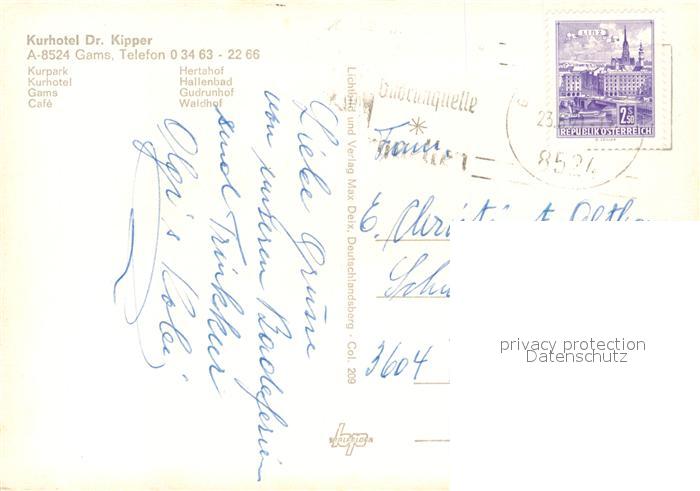 Kurhotel Dr. Kipper
A-8524 Gams, Telefon 0 34 63 - 22 66
Kurpark Hertahof
Kurhotel Hallenbad
Gams Gudrunhof
Café Waldhof
Liebe Grüsse
von unseren Badeferien
und Trinkkur
Olgi's
Lichtbild und Verlag Max Deix, Deutschlandsberg · Col. 209
LINZ
2.50
REPUBLIK ÖSTERREICH
23.
8524
E.
3604
privacy protection
Datenschutz